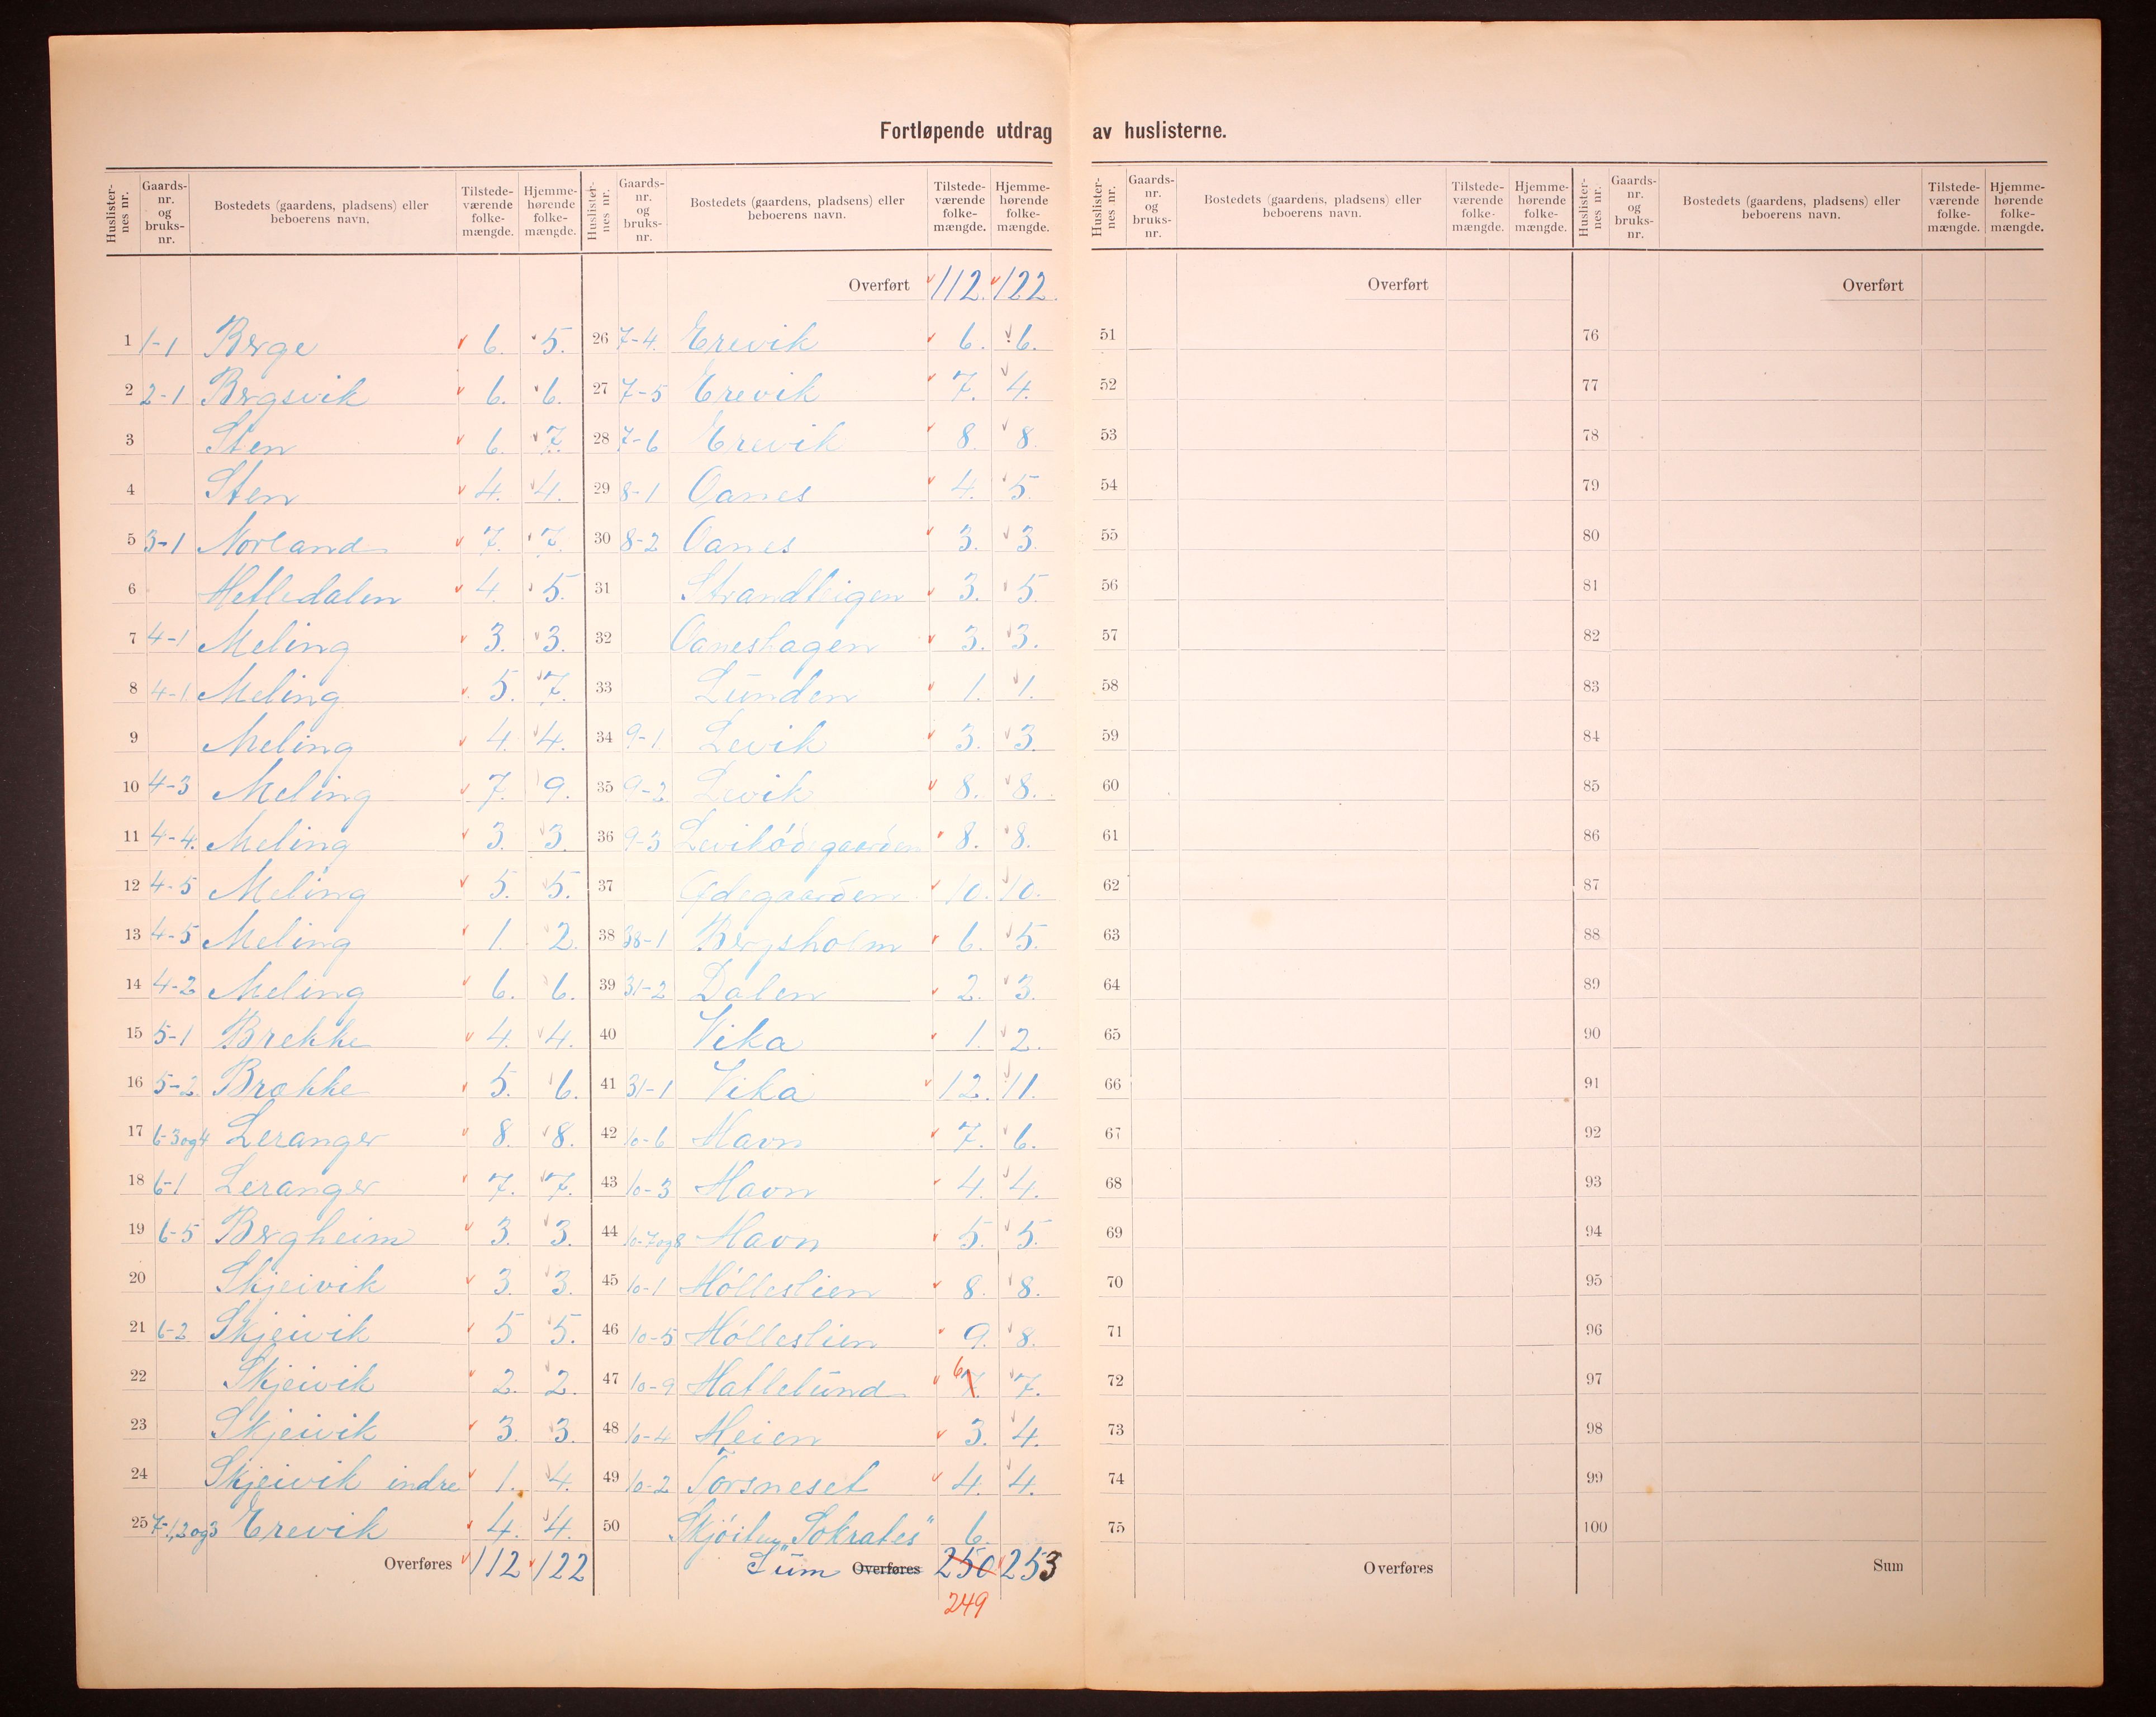 Fortløpende utdrag av huslisterne.
Huslisternes nr. Gaards-nr. og bruks-nr. Bostedets (gaardens, pladsens) eller beboerens navn. Tilstede-værende folke-mængde. Hjemme-hørende folke-mængde.
1 1-1 Berge 6. 5.
2 2-1 Bergsvik 6. 6.
3 Sten 6. 7.
4 Sten 4. 4.
5 3-1 Norland 7. 7.
6 Hetledalen 4. 5.
7 4-1 Meling 3. 3.
8 4-1 Meling 5. 7.
9 Meling 4. 4.
10 4-3 Meling 7. 9.
11 4-4. Meling 3. 3.
12 4-5 Meling 5. 5.
13 4-5 Meling 1. 2.
14 4-2 Meling 6. 6.
15 5-1 Brekke 4. 4.
16 5-2. Brekke 5. 6.
17 6-3og4 Leranger 8. 8.
18 6-1 Leranger 7. 7.
19 6-5 Bergheim 3. 3.
20 Skjeivik 3. 3.
21 6-2 Skjeivik 5 5.
22 Skjeivik 2. 2.
23 Skjeivik 3. 3.
24 Skjeivik indre 1. 4.
25 7-1,2og3 Erevik 4. 4.
Overføres 112 122
Huslisternes nr. Gaards-nr. og bruks-nr. Bostedets (gaardens, pladsens) eller beboerens navn. Tilstede-værende folke-mængde. Hjemme-hørende folke-mængde.
Overført 112. 122.
26 7-4. Erevik 6. 6.
27 7-5 Erevik 7. 4.
28 7-6 Erevik 8. 8.
29 8-1 Oanes 4. 5.
30 8-2 Oanes 3. 3.
31 3. 5.
32 Oaneshagen 3. 3.
33 Lunden 1. 1.
34 9-1. Levik 3. 3.
35 9-2 Levik 8. 8.
36 9-3 Levikødegaarden 8. 8.
37 Ødegaarden 10. 10.
38 38-1 Bergsholm 6. 5.
39 31-2 Dalen 2. 3.
40 Vika 1. 2.
41 31-1 Vika 12. 11.
42 10-6 Havn 7. 6.
43 10-3 Havn 4. 4.
44 10-7og8 Havn 5. 5.
45 10-1 Hølleslien 8. 8.
46 10-5 Hølleslien 9. 8.
47 10-9 Hatlelund 7. 6 7.
48 10-4 Heien 3. 4.
49 10-2 Torsneset 4. 4.
50 Skjøiten „Sokrates" 6.
Sum Overføres 250 253
249
Huslisternes nr. Gaards-nr. og bruks-nr. Bostedets (gaardens, pladsens) eller beboerens navn. Tilstede-værende folke-mængde. Hjemme-hørende folke-mængde.
Overført
51
52
53
54
55
56
57
58
59
60
61
62
63
64
65
66
67
68
69
70
71
72
73
74
75
Overføres
Huslisternes nr. Gaards-nr. og bruks-nr. Bostedets (gaardens, pladsens) eller beboerens navn. Tilstede-værende folke-mængde. Hjemme-hørende folke-mængde.
Overført
76
77
78
79
80
81
82
83
84
85
86
87
88
89
90
91
92
93
94
95
96
97
98
99
100
Sum